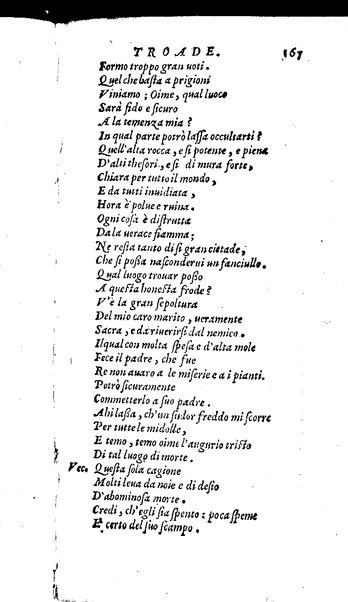 TROADE. 167
Formo troppo gran uoti.
Quel che basta a prigioni
Viniamo; Oime, qual luoco
Sarà fido e sicuro
A la temenza mia?
In qual parte potrò lassa occultarti?
Quell'alta rocca, e sì potente, e piena
D'alti thesori, e sì di mura forte,
Chiara per tutto il mondo,
E da tutti inuidiata,
Hora è polue e ruina.
Ogni cosa è distrutta
Da la uerace fiamma;
Ne resta tanto di sì gran cittade,
Che si possa nasconderui un fanciullo.
Qual luogo trouar posso
A questa honesta frode?
V'è la gran sepoltura
Del mio caro marito, ueramente
Sacra, e da riuerirsi dal nemico.
Il qual con molta spesa e d'alta mole
Fece il padre, che fue
Re non auaro a le miserie e a i pianti.
Potrò sicuramente
Commetterlo a suo padre.
Ahi lassa, ch'un sudor freddo mi scorre
Per tutte le midolle,
E temo, temo oime l'augurio tristo
Di tal luogo di morte.
Vec. Questa sola cagione
Molti leua da noie e di desio
D'abominosa morte.
Credi, ch'egli sia spento: poca speme
E certo del suo scampo.